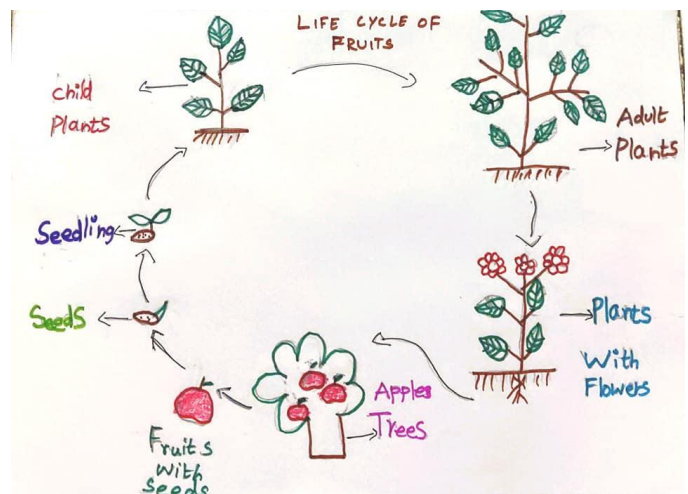 LIFE CYCLE OF
FRUITS
Child
Plants
Adult
Plants
Seedling
Seeds
Plants
With
Flowers
Apples
Trees
Fruits
With
Seeds